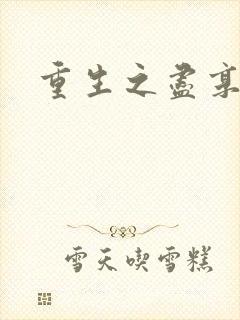 重生之盡
雪天喫雪糕